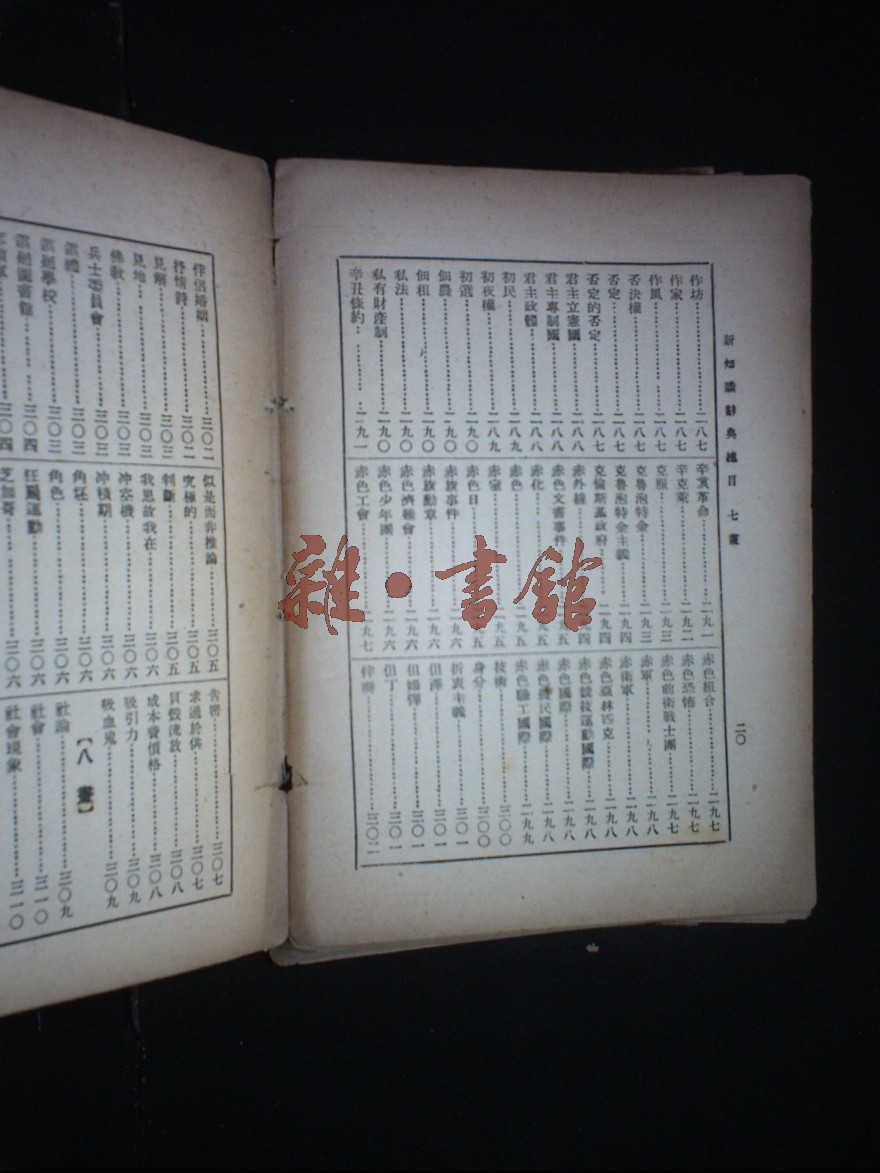 新知識辭典總目 七畫
二〇
作坊 二八七
作家 二八七
作風 二八七
否決權 二八七
否定 二八七
否定的否定 二八七
君主立憲國 二八八
君主專制國 二八八
君主政體 二八八
初民 二八九
初夜權 二八九
初選 二九〇
佃農 二九〇
佃租 二九〇
私法 二九〇
私有財產制 二九〇
辛丑條約 二九一
辛亥革命 二九一
辛克萊 二九二
克服 二九三
克魯泡特金 二九三
克魯泡特金主義 二九四
克倫斯基政府 二九四
赤外線
赤色文書事件
赤化
赤色
赤室
赤色日
赤旗事件 二九六
赤旗勳章 二九六
赤色濟難會 二九六
赤色少年團 二九六
赤色工會 二九七
赤色組合 二九七
赤色恐怖 二九七
赤色前衛戰士團 二九七
赤軍 二九八
赤衛軍 二九八
赤色亞林匹克 二九八
赤色競技運動國際 二九八
赤色國際 二九八
赤色農民國際 二九八
赤色職工國際 二九九
技術 三〇〇
身分 三〇〇
折衷主義 三〇一
但澤 三〇一
但丁 三〇一
伴奏 三〇二
伴侶婚姻 三〇二
抒情詩 三〇二
見解 三〇三
見地 三〇三
佛教 三〇三
兵士委員會 三〇三
巡迴學校 三〇三
巡迴圖書館 三〇四
似是而非推論 三〇五
究極的 三〇五
判斷 三〇五
我思故我在 三〇六
冲空機 三〇六
冲積期 三〇六
角逐 三〇六
角色 三〇六
狂飆運動 三〇六
芝加哥 三〇六
告密 三〇七
求過於供 三〇七
貝殼流放 三〇八
成本賣價格 三〇八
吸引力 三〇九
吸血鬼 三〇九
【八畫】
社論 三〇九
社會 三一〇
社會現象 三一〇
雜·書館